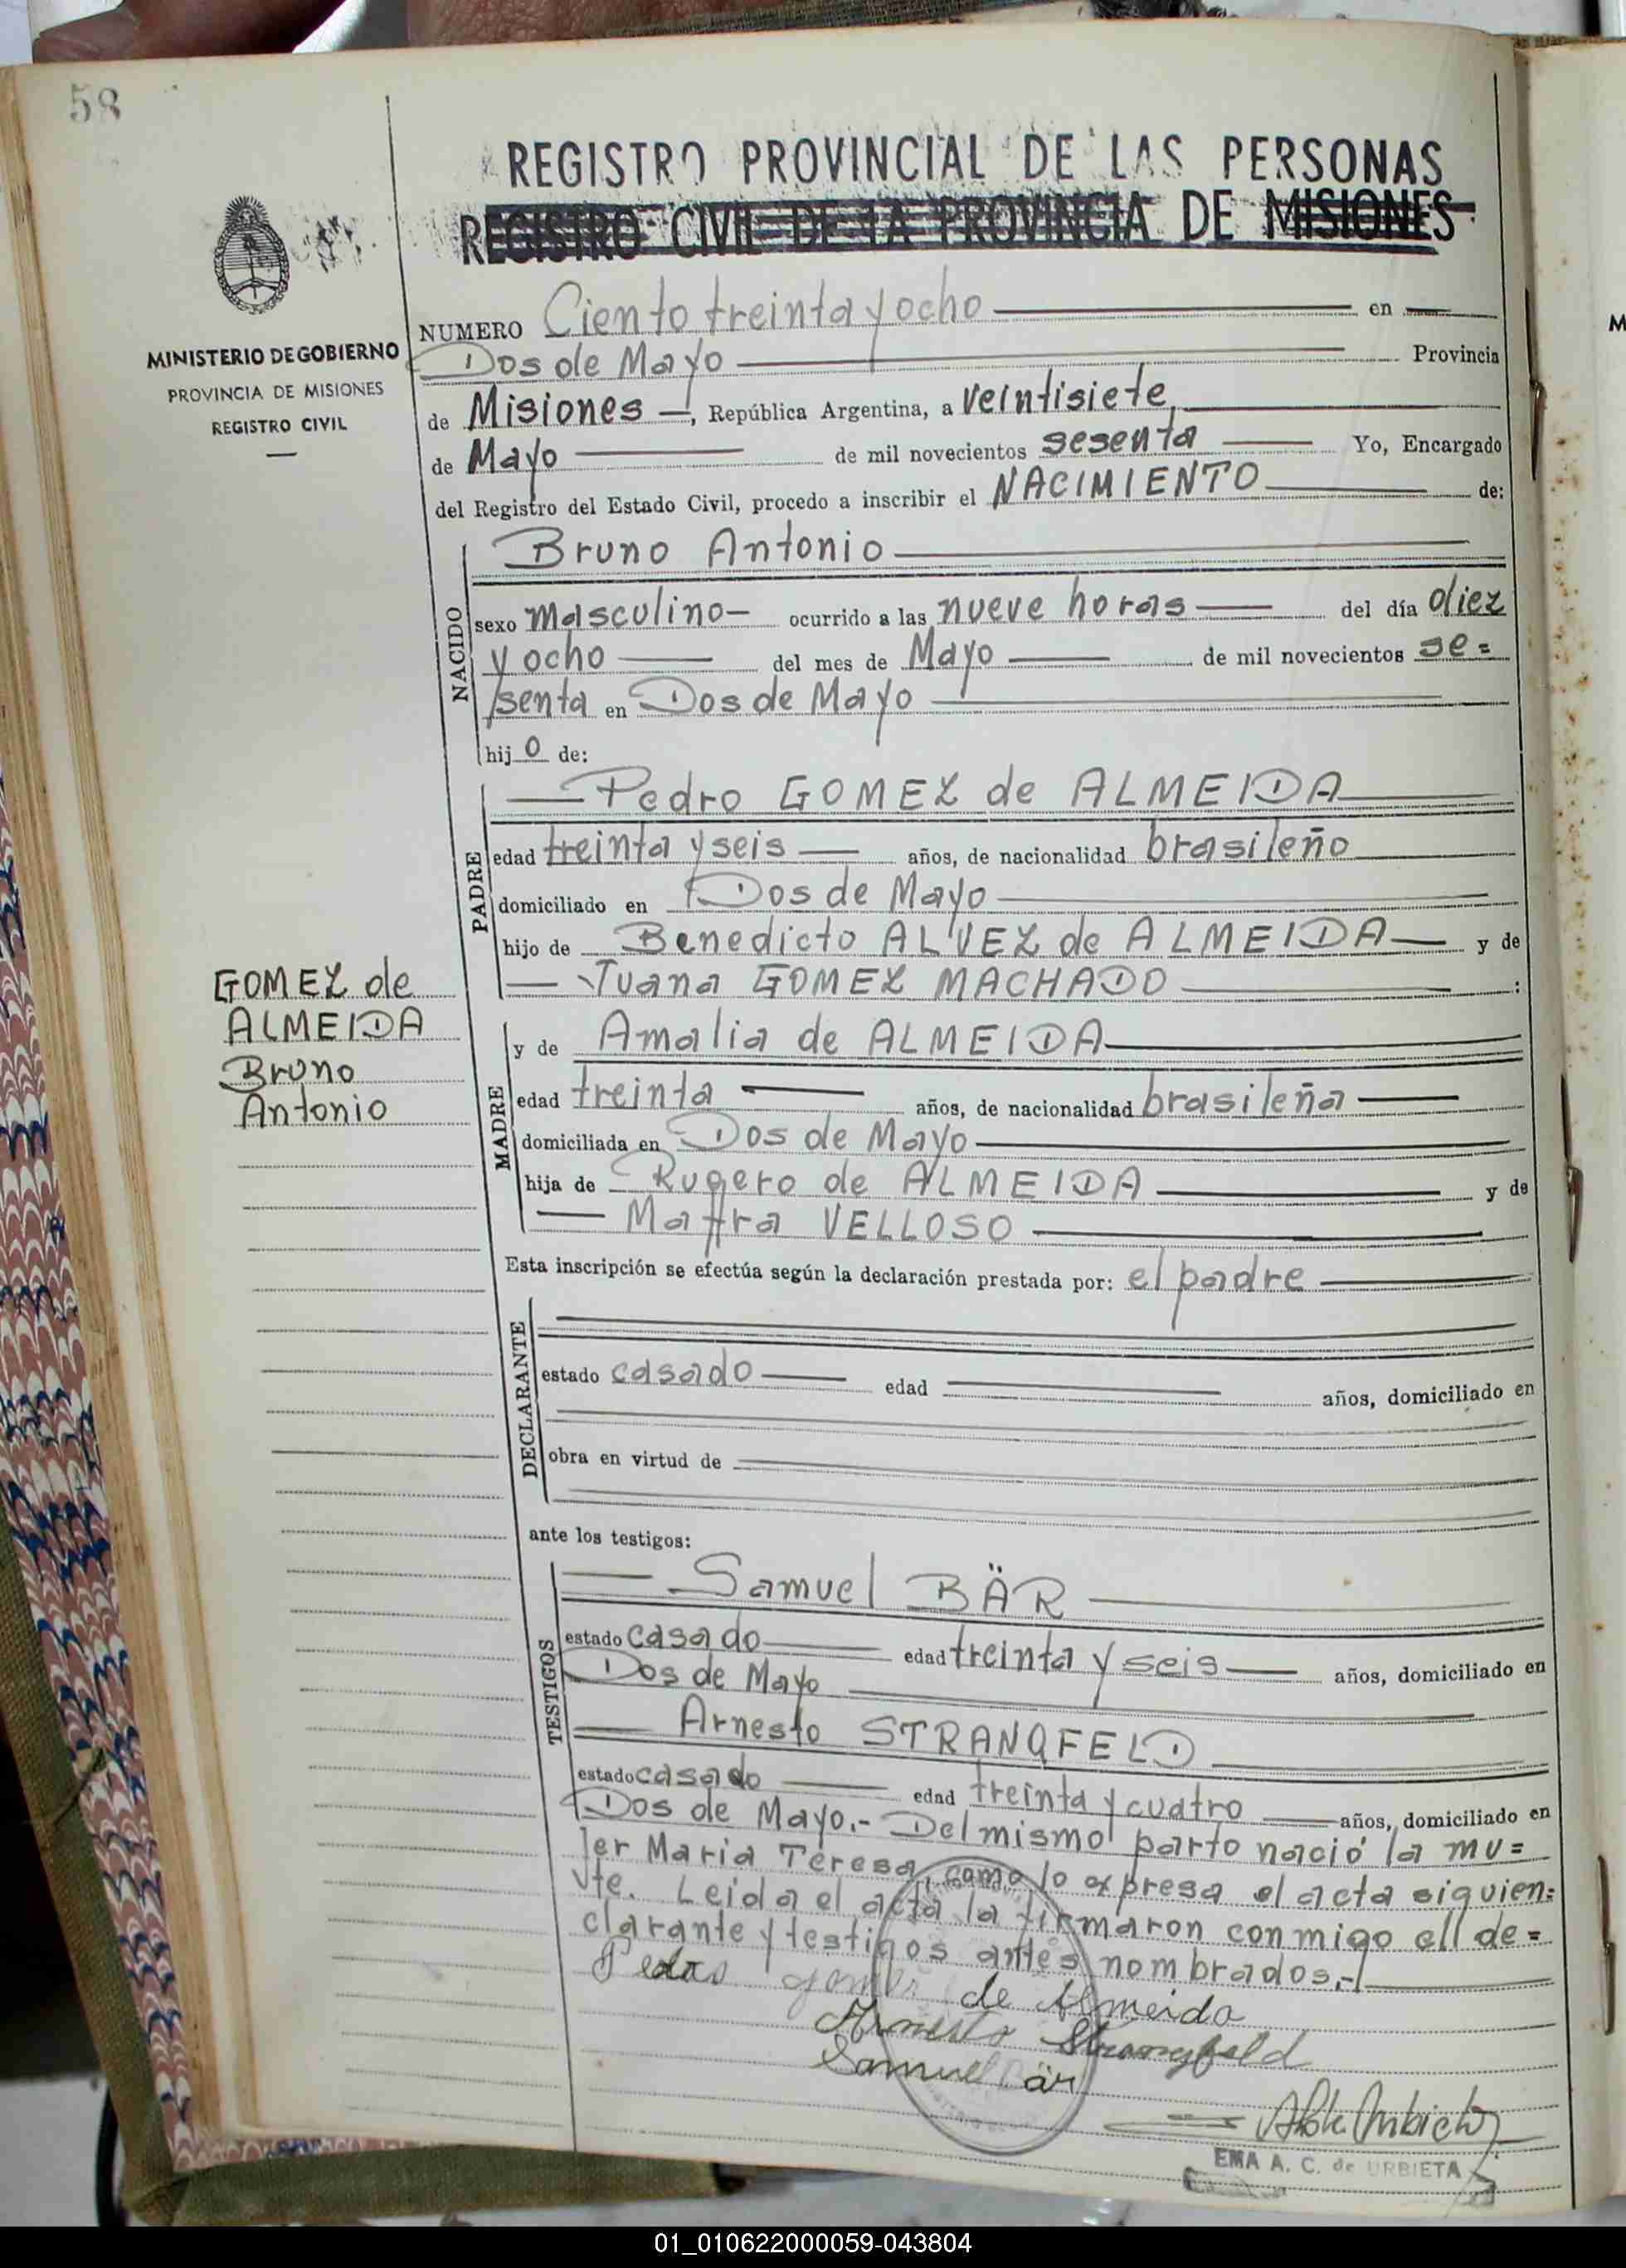 58
REGISTRO PROVINCIAL DE LAS PERSONAS
REGISTRO CIVIL DE LA PROVINCIA DE MISIONES
MINISTERIO DE GOBIERNO
PROVINCIA DE MISIONES
REGISTRO CIVIL
NUMERO Ciento treinta y ocho en
Dos de Mayo Provincia
de Misiones, República Argentina, a veintisiete
de Mayo de mil novecientos sesenta Yo, Encargado
del Registro del Estado Civil, procedo a inscribir el NACIMIENTO de:
NACIDO
Bruno Antonio
sexo masculino ocurrido a las nueve horas del día diez
y ocho del mes de Mayo de mil novecientos se=
senta en Dos de Mayo
hijo de:
PADRE
Pedro GOMEZ de ALMEIDA
edad treinta y seis años, de nacionalidad brasileño
domiciliado en Dos de Mayo
hijo de Benedicto ALVEZ de ALMEIDA y de
Juana GOMEZ MACHADO :
GOMEZ de
ALMEIDA
Bruno
Antonio
MADRE
y de Amalia de ALMEIDA
edad treinta años, de nacionalidad brasileña
domiciliada en Dos de Mayo
hija de Rugero de ALMEIDA y de
VELLOSO
Esta inscripción se efectúa según la declaración prestada por: el padre
DECLARANTE
estado casado edad años, domiciliado en
obra en virtud de
ante los testigos:
TESTIGOS
Samuel BÄR
estado casado edad treinta y seis años, domiciliado en
Dos de Mayo
Arnesto STRANGFELD
estado casado edad treinta y cuatro años, domiciliado en
Dos de Mayo.- Del mismo parto nació la mu=
jer Maria Teresa, como lo expresa el acta siguien=
te. Leida el acta la firmaron conmigo ell de=
clarante y testigos antes nombrados.-
Pedro gomes de Almeida
Arnesto Strangfeld
Samuel Bär
EMA A. C. de URBIETA
01_010622000059-043804